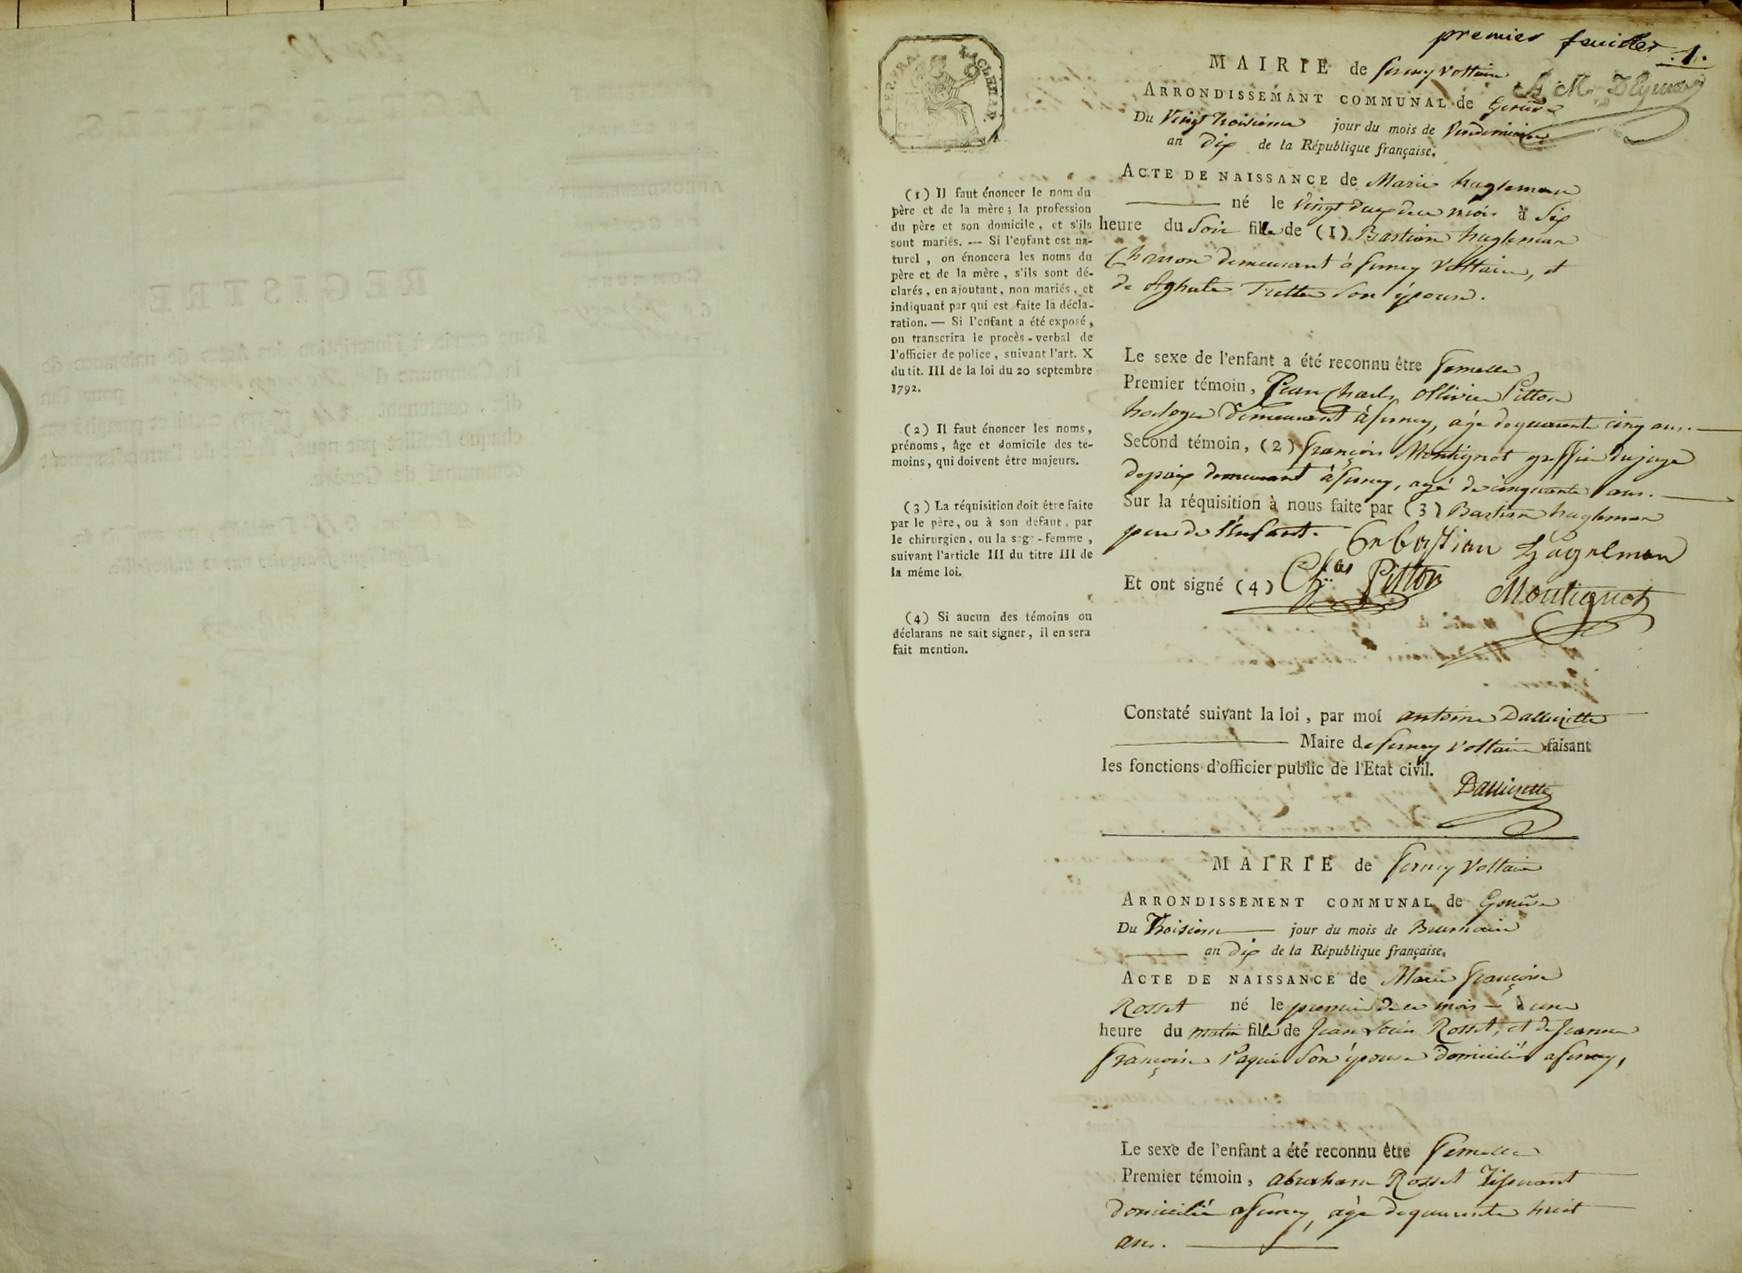 premier feuillet .1.
MAIRIE de ferney Voltaire
ARRONDISSEMANT COMMUNAL de Genève
Du Vingt troisieme jour du mois de Vendemiaire
an dix de la République française.
ACTE DE NAISSANCE de Marie hagleman
né le Vingt deux du mois à Six
heure du Soir fille de (1) Bastian hagleman
demeurant à ferney Voltaire, et
de Aghate Son épouse.
Le sexe de l'enfant a été reconnu être femelle
Premier témoin, Jean Charles ollivier Pitton
horloger demeurant à ferney, agé de quarente cinq ans.
Second témoin, (2) françois Montignot greffier du juge
depaix demeurant à ferney, agé de cinquante ans.
Sur la réquisition à nous faite par (3) Bastian hagleman
pere de l'enfant. Sebastian Hagelman
Et ont signé (4) Ch.les Pitton Montignot
Constaté suivant la loi, par moi antoine
Maire de ferney Voltaire faisant
les fonctions d'officier public de l'Etat civil.
(1) Il faut énoncer le nom du
père et de la mère; la profession
du père et son domicile, et s'ils
sont mariés. — Si l'enfant est na-
turel, on énoncera les noms du
père et de la mère, s'ils sont dé-
clarés, en ajoutant, non mariés, et
indiquant par qui est faite la décla-
ration. — Si l'enfant a été exposé,
on transcrira le procès-verbal de
l'officier de police, suivant l'art. X
du tit. III de la loi du 20 septembre
1792.
(2) Il faut énoncer les noms,
prénoms, âge et domicile des té-
moins, qui doivent être majeurs.
(3) La réquisition doit être faite
par le père, ou à son défaut, par
le chirurgien, ou la sage-femme,
suivant l'article III du titre III de
la même loi.
(4) Si aucun des témoins ou
déclarans ne sait signer, il en sera
fait mention.
MAIRIE de ferney Voltaire
ARRONDISSEMENT COMMUNAL de Genève
Du Troisieme jour du mois de Brumaire
an dix de la République française.
ACTE DE NAISSANCE de Marie françoise
Rosset né le premier de ce mois à une
heure du matin fille de Jean Louis Rosset, et de Jeanne
françoise Son épouse domiciliés a ferney,
Le sexe de l'enfant a été reconnu être femelle
Premier témoin, abraham Rosset Tisserant
domicilié a ferney, agé de quarente huit
ans.